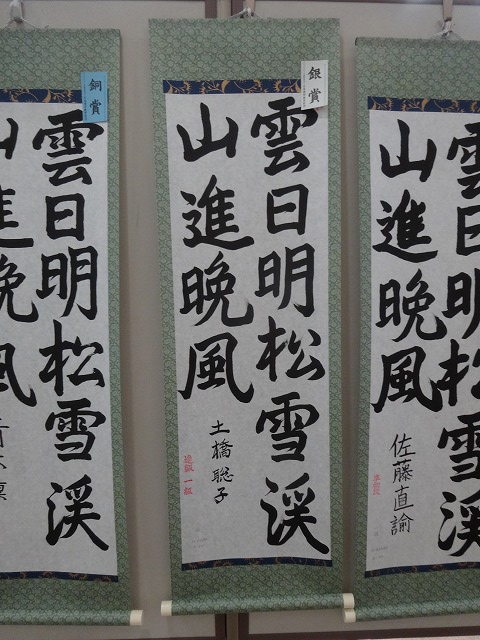 銀賞
雲日明松雪渓
山進晩風
土橋聡子
一級
雲日明松雪渓
山進晩風
佐藤直諭
銅賞
雲日明松雪渓
山進晩風